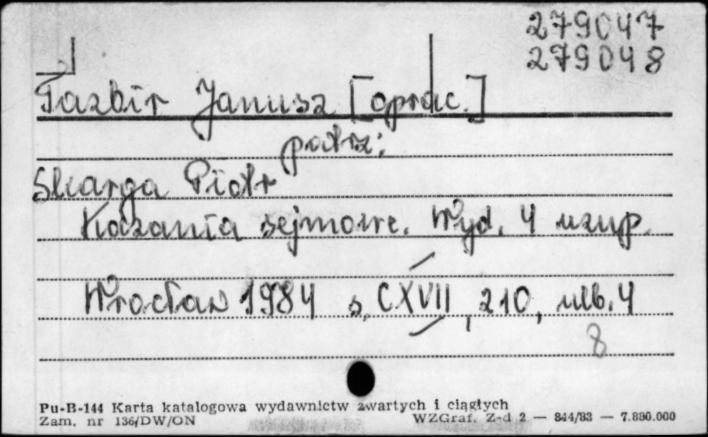 279047
279048
Tazbir Janusz [oprac.]
patrz:
Skarga Piotr
Kazania sejmowe. Wyd. 4 uzup.
Wrocław 1984 s. CXVII, 210, nlb. 4
8
Pu-B-144 Karta katalogowa wydawnictw zwartych i ciągłych
Zam. nr 136/DW/ON WZGraf. Z-d 2 — 844/83 — 7.800.000